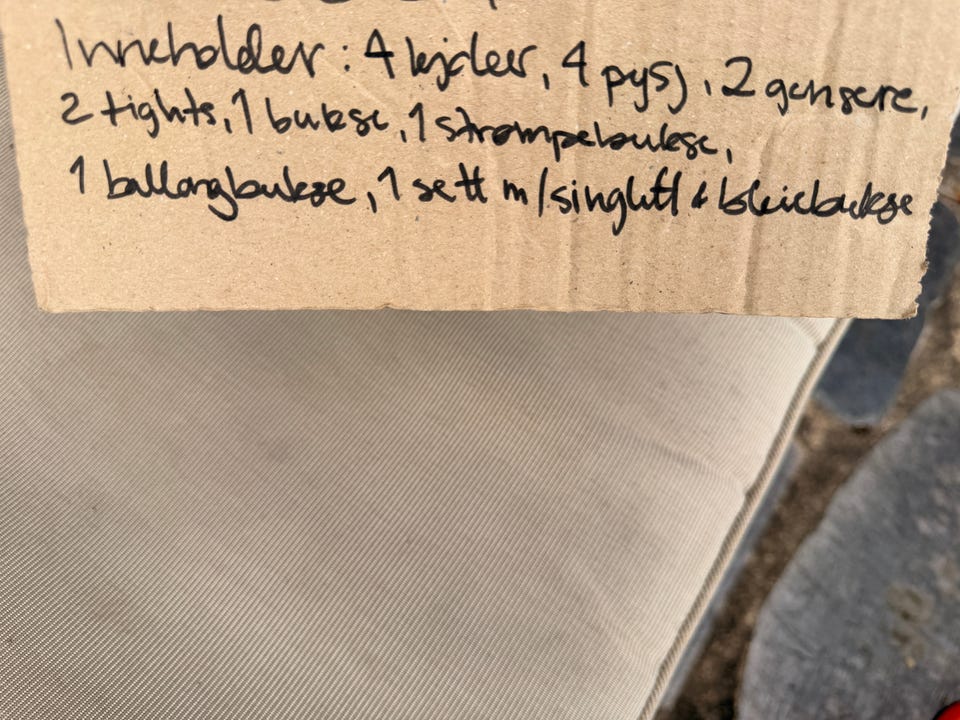 Inneholder: 4 kjoler, 4 pysj, 2 gensere,
2 tights, 1 bukse, 1 strømpebukse,
1 ballongbukse, 1 sett m/singlett & bleiebukse